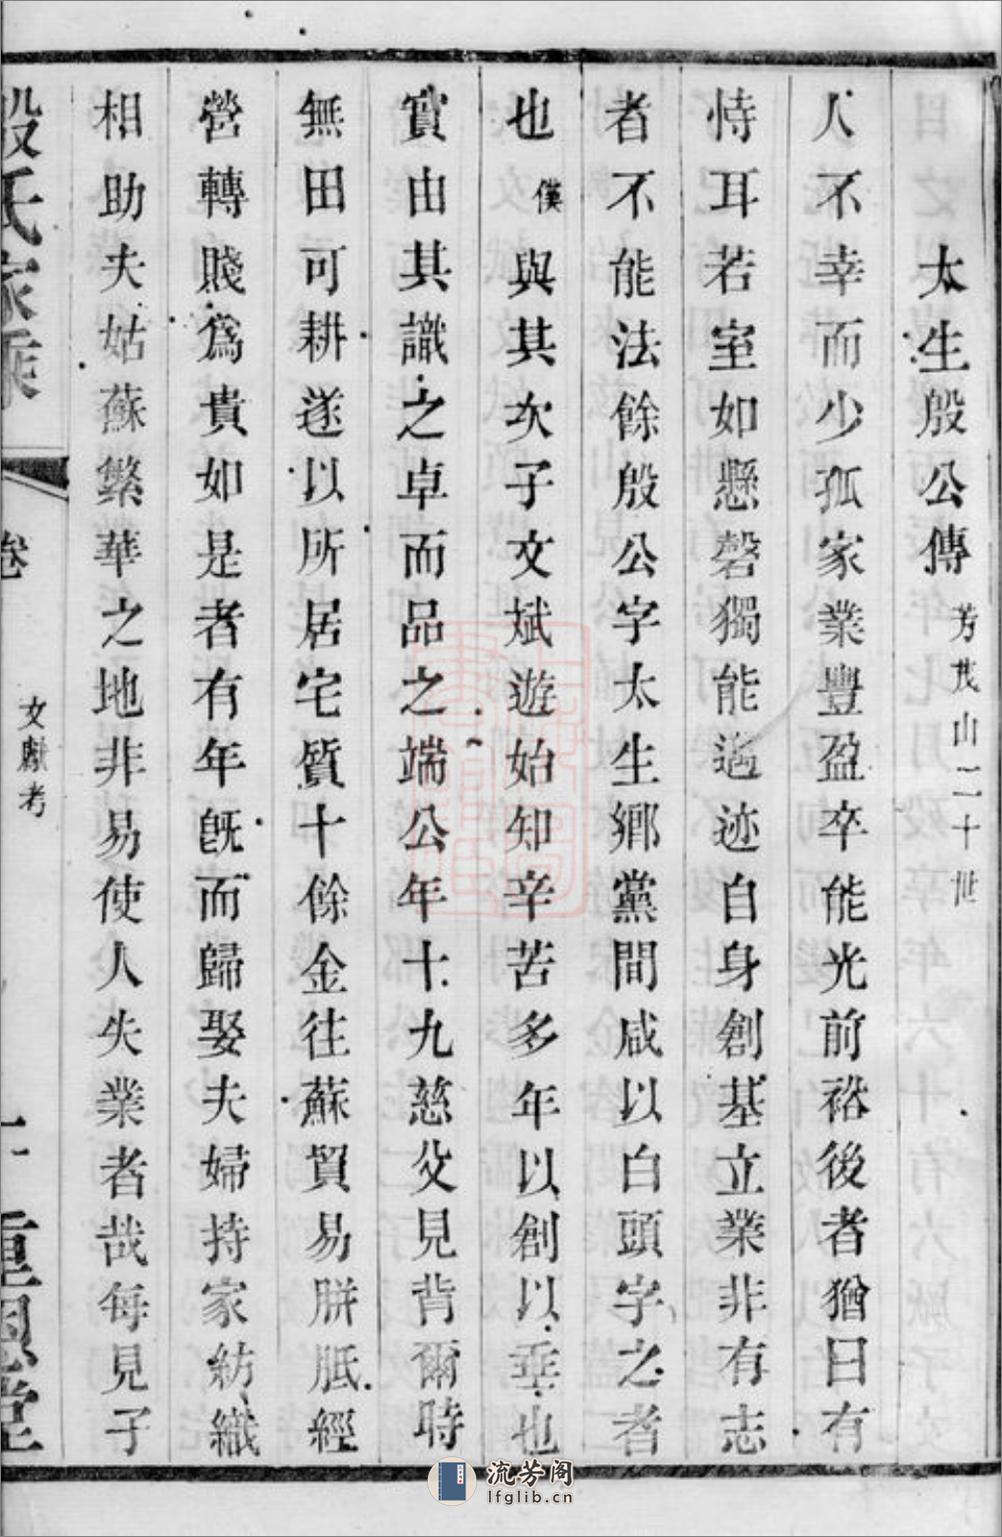 太生殷公傳 芳茂山二十世
人不幸而少孤家業豐盈卒能光前裕後者猶曰有
恃耳若室如懸磬獨能邁迹自身創基立業非有志
者不能法餘殷公字太生鄉黨間咸以白頭字之者
也僕與其次子文斌遊始知辛苦多年以創以垂也
實由其識之卓而品之端公年十九慈父見背爾時
無田可耕遂以所居宅質十餘金往蘇貿易胼胝經
營轉賤為貴如是者有年既而歸娶夫婦持家紡織
相助夫姑蘇繁華之地非易使人失業者哉每見子
殷氏家乘
卷
文獻考
重恩堂
流芳阁
lfglib.cn